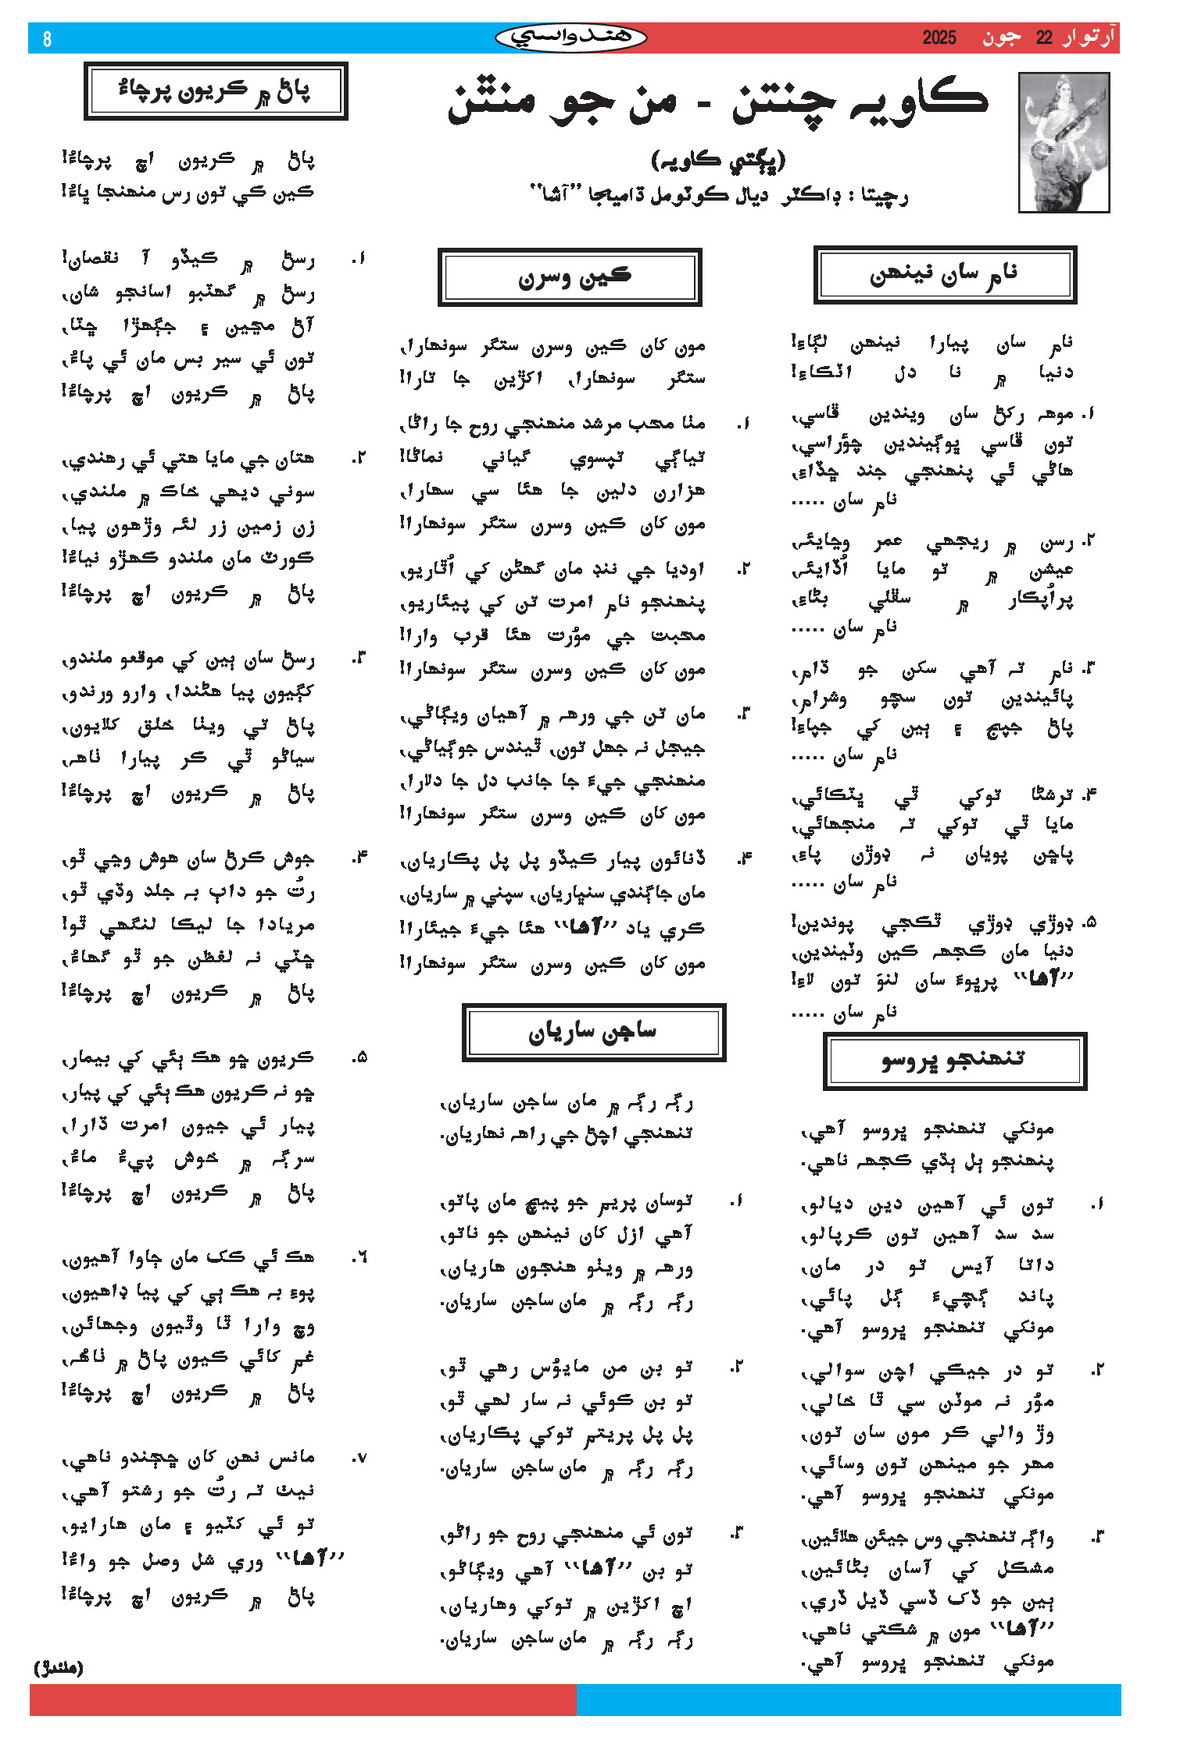 آرتوار 22 جون 2025
هندواسي
8
ڪاويہ چنتن - من جو منٿن
(ڀڳتي ڪاويہ)
رچيتا : ڊاڪٽر ديال ڪوٽومل ڌاميجا ”آشا“
نام سان نينهن
نام سان پيارا نينهن لڳاءِ!
دنيا ۾ نا دل اٽڪاءِ!
۱. موهہ رکڻ سان ويندين ڦاسي،
تون ڦاسي ڀوڳيندين چؤراسي،
هاڻي ئي پنهنجي جند ڇڏاءِ،
نام سان .....
۲. رسن ۾ ريجهي عمر وڃايئہ،
عيشن ۾ تو مايا اُڏايئہ،
پراُپڪار ۾ سڦلي بڻاءِ،
نام سان .....
۳. نام تہ آهي سکن جو ڌام،
پائيندين تون سچو وشرام،
پاڻ جپج ۽ ٻين کي جپاءِ!
نام سان .....
۴. ترشڻا توکي ٿي ڀٽڪائي،
مايا ٿي توکي تہ منجهائي،
پاڇن پويان نہ ڊوڙن پاءِ،
نام سان .....
۵. ڊوڙي ڊوڙي ٿڪجي پوندين!
دنيا مان ڪجهہ ڪين وٺيندين،
”آشا“ پرڀوءَ سان لنوَ تون لاءِ!
نام سان .....
تنهنجو ڀروسو
مونکي تنهنجو ڀروسو آهي،
پنهنجو ٻل ٻڌي ڪجهہ ناهي.
۱. تون ئي آهين دين ديالو،
سد سد آهين تون ڪرپالو،
داتا آيس تو در مان،
پاند ڳچيءَ ڳل پائي،
مونکي تنهنجو ڀروسو آهي.
۲. تو در جيڪي اچن سوالي،
موُر نہ موٽن سي ٿا خالي،
وڙ والي ڪر مون سان تون،
مهر جو مينهن تون وسائي،
مونکي تنهنجو ڀروسو آهي.
۳. واڳہ تنهنجي وس جيئن هلائين،
مشڪل کي آسان بڻائين،
ٻين جو ڏک ڏسي ڏيل ڏري،
”آشا“ مون ۾ شڪتي ناهي،
مونکي تنهنجو ڀروسو آهي.
ڪين وسرن
مون کان ڪين وسرن ستگر سونهارا،
ستگر سونهارا، اکڙين جا تارا!
۱. مٺا محب مرشد منهنجي روح جا راڻا،
تياڳي تپسوي گياني نماڻا!
هزارن دلين جا هئا سي سهارا،
مون کان ڪين وسرن ستگر سونهارا!
۲. اوديا جي ننڊ مان گهڻن کي اُٿاريو،
پنهنجو نام امرت تن کي پيئاريو،
محبت جي موُرت هئا قرب وارا!
مون کان ڪين وسرن ستگر سونهارا!
۳. مان تن جي ورهہ ۾ آهيان ويڳاڻي،
جيجل نہ جهل تون، ٿيندس جوڳياڻي،
منهنجي جيءَ جا جانب دل جا دلارا،
مون کان ڪين وسرن ستگر سونهارا!
۴. ڏنائون پيار ڪيڏو پل پل پڪاريان،
مان جاڳندي سنڀاريان، سپني ۾ ساريان،
ڪري ياد ”آشا“ هئا جيءَ جيئارا!
مون کان ڪين وسرن ستگر سونهارا!
ساجن ساريان
رڳہ رڳہ ۾ مان ساجن ساريان،
تنهنجي اچڻ جي راهہ نهاريان.
۱. توسان پريم جو پيچ مان پاتو،
آهي ازل کان نينهن جو ناتو،
ورهہ ۾ ويٺو هنجون هاريان،
رڳہ رڳہ ۾ مان ساجن ساريان.
۲. تو بن من مايوُس رهي ٿو،
تو بن ڪوئي نہ سار لهي ٿو،
پل پل پريتم توکي پڪاريان،
رڳہ رڳہ ۾ مان ساجن ساريان.
۳. تون ئي منهنجي روح جو راڻو،
تو بن ”آشا“ آهي ويڳاڻو،
اچ اکڙين ۾ توکي وهاريان،
رڳہ رڳہ ۾ مان ساجن ساريان.
پاڻ ۾ ڪريون پرچاءُ
پاڻ ۾ ڪريون اچ پرچاءُ!
ڪين کي تون رس منهنجا ڀاءُ!
۱. رسڻ ۾ ڪيڏو آ نقصان!
رسڻ ۾ گهٽبو اسانجو شان،
آڻ مڃين ۽ جڳهڙا ڇٽا،
تون ئي سير بس مان ئي پاءُ،
پاڻ ۾ ڪريون اچ پرچاءُ!
۲. هتان جي مايا هتي ئي رهندي،
سوني ديهي خاڪ ۾ ملندي،
زن زمين زر لئہ وڙهون پيا،
ڪورٽ مان ملندو ڪهڙو نياءُ!
پاڻ ۾ ڪريون اچ پرچاءُ!
۳. رسڻ سان ٻين کي موقعو ملندو،
کڳيون پيا هڻندا، وارو ورندو،
پاڻ تي ويٺا خلق کلايون،
سياڻو ٿي ڪر پيارا ٺاهہ،
پاڻ ۾ ڪريون اچ پرچاءُ!
۴. جوش ڪرڻ سان هوش وڃي ٿو،
رتُ جو داٻ بہ جلد وڌي ٿو،
مريادا جا ليڪا لنگهي ٿو!
ڇٽي نہ لفظن جو ٿو گهاءُ،
پاڻ ۾ ڪريون اچ پرچاءُ!
۵. ڪريون ڇو هڪ ٻئي کي بيمار،
ڇو نہ ڪريون هڪ ٻئي کي پيار،
پيار ئي جيون امرت ڌارا،
سرڳہ ۾ خوش پيءُ ماءُ،
پاڻ ۾ ڪريون اچ پرچاءُ!
۶. هڪ ئي ڪک مان ڄاوا آهيون،
پوءِ بہ هڪ ٻي کي پيا ڊاهيون،
وچ وارا ٿا وٿيون وجهائن،
غم کائي ڪيون پاڻ ۾ ٺاهہ،
پاڻ ۾ ڪريون اچ پرچاءُ!
۷. مانس نهن کان ڇڄندو ناهي،
نيٺ تہ رتُ جو رشتو آهي،
تو ئي کٽيو ۽ مان هارايو،
”آشا“ وري شل وصل جو واءُ!
پاڻ ۾ ڪريون اچ پرچاءُ!
(هلندڙ)